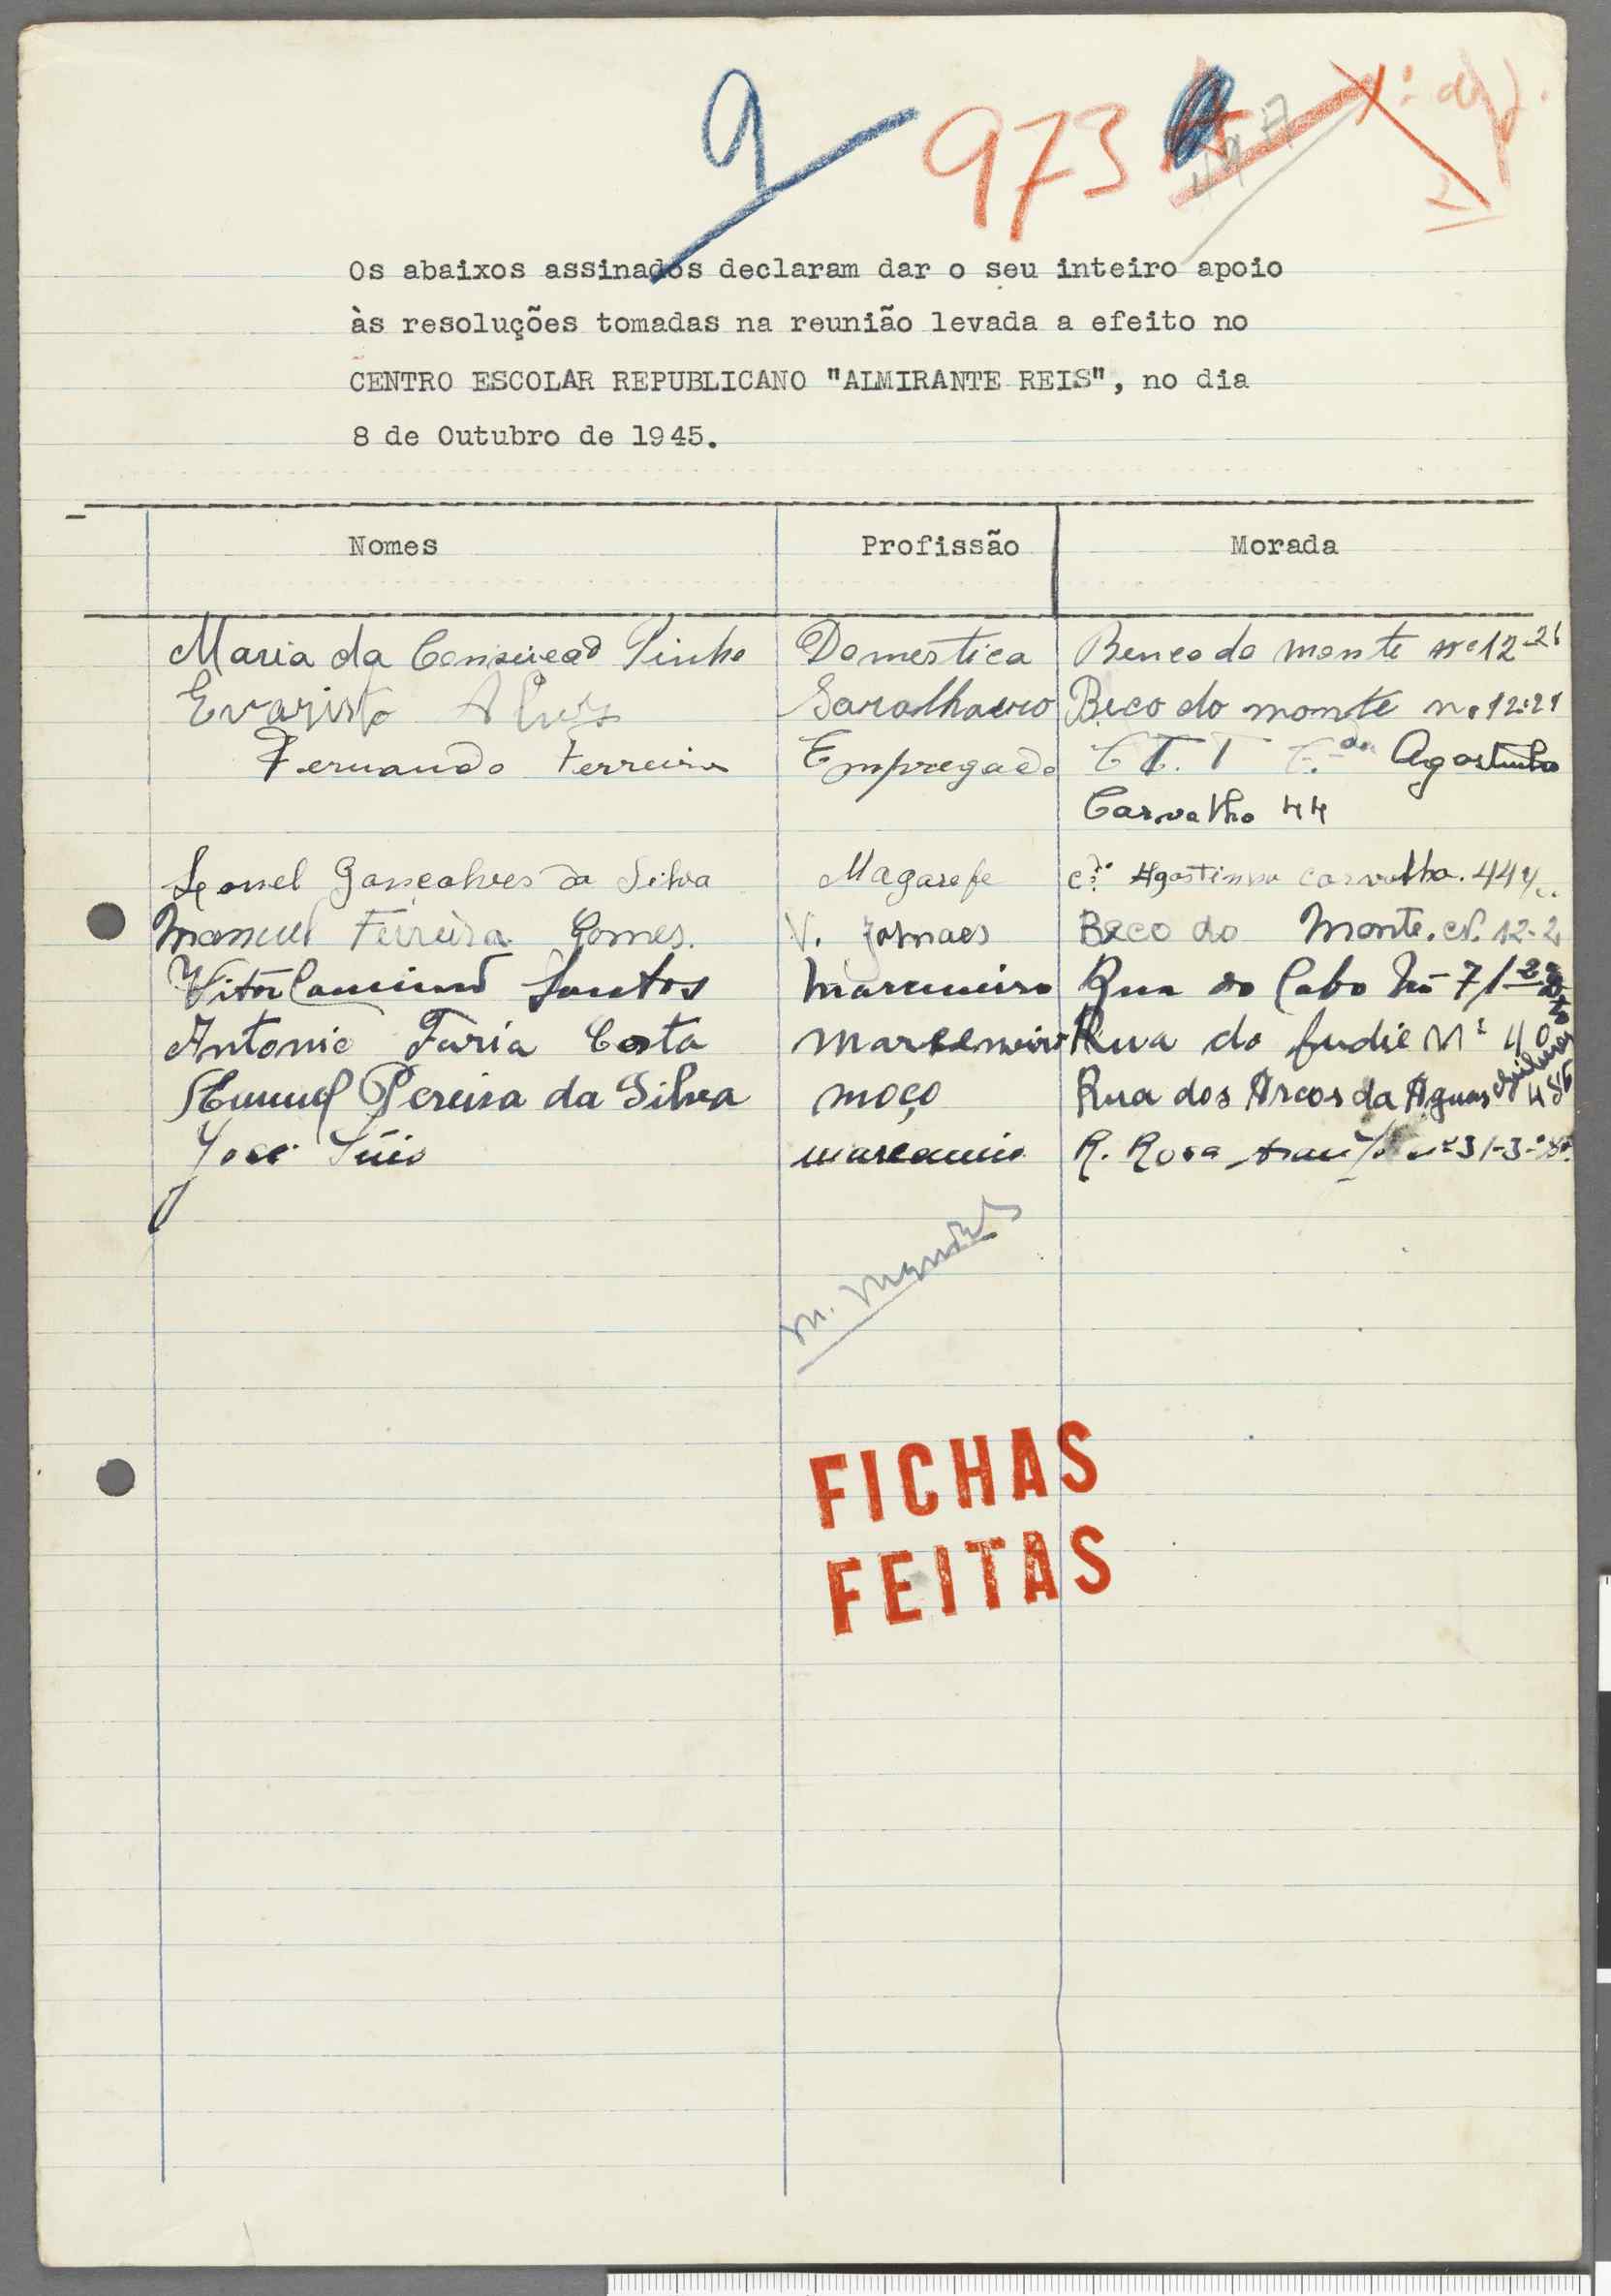 9 973
Os abaixos assinados declaram dar o seu inteiro apoio
às resoluções tomadas na reunião levada a efeito no
CENTRO ESCOLAR REPUBLICANO "ALMIRANTE REIS", no dia
8 de Outubro de 1945.
Nomes Profissão Morada
Maria da Pinho Domestica do monte 12-2
Evaristo Alves Saralhaero Beco do monte n.º 12-2
Fernando Ferreira Empregado C T. T Agostinho
Carvalho 44
Leonel Gonçalves da Silva Magarefe Agostinho Carvalho. 44
Manuel Ferreira Gomes. V. Jornaes Beco do Monte. 12-2
Vitor Santos Marceneiro Rua do Cabo 7
Antonio Faria Costa Marceneiro Rua do Nº 40
Manuel Pereira da Silva moço Rua dos Arcos da Aguas
José R. Rosa
FICHAS
FEITAS